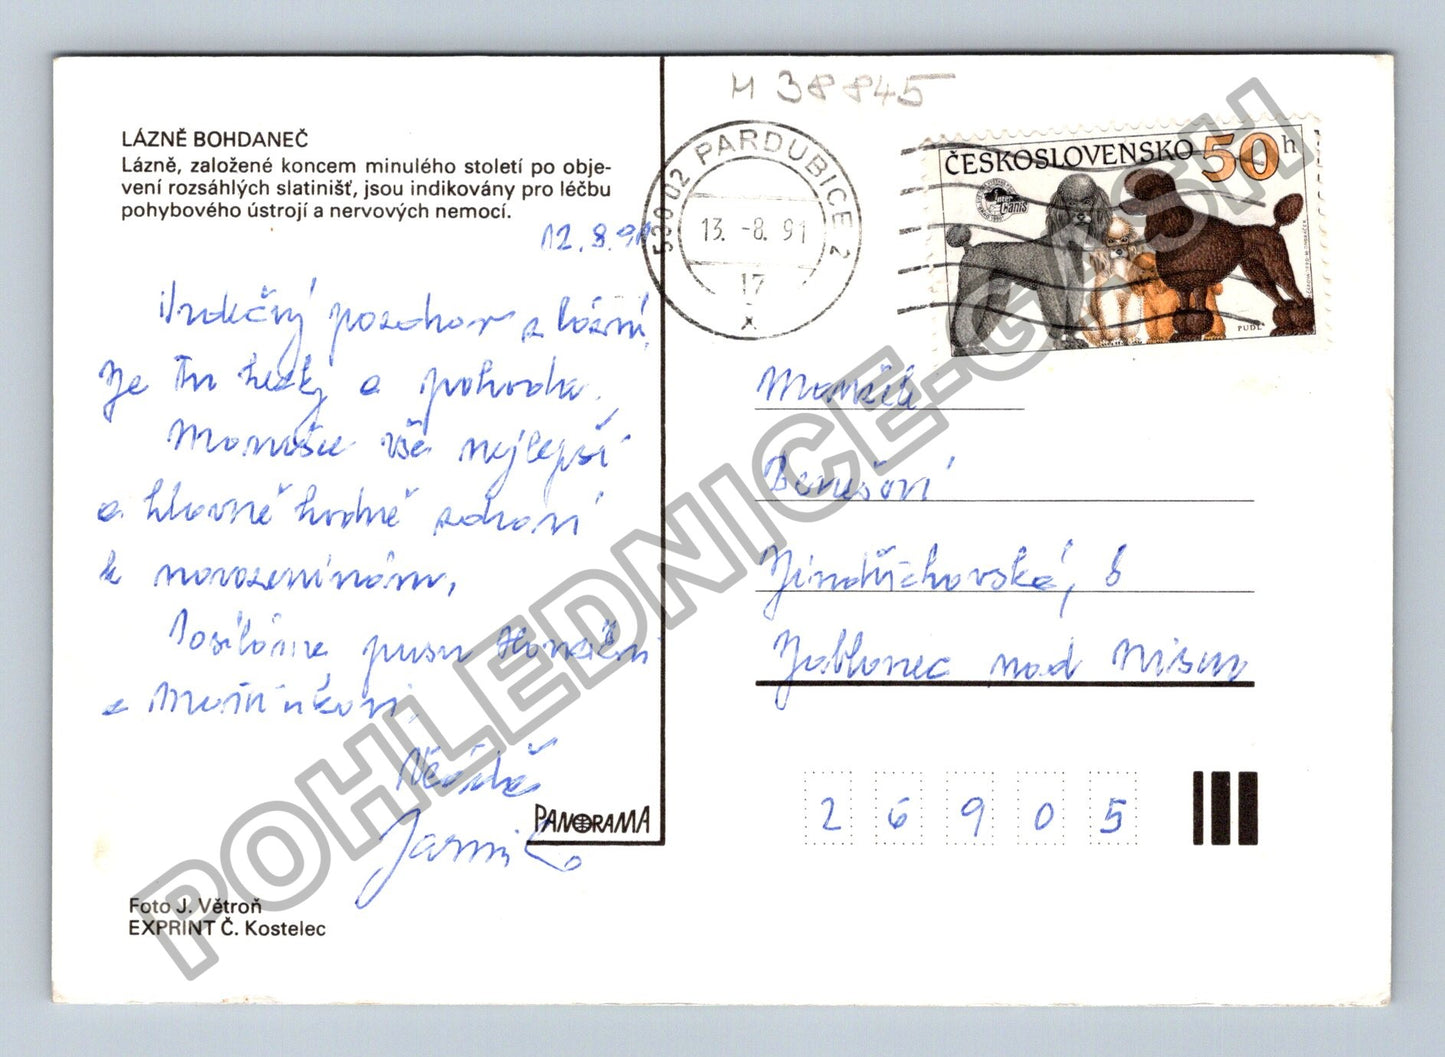 LÁZNĚ BOHDANEČ
Lázně, založené koncem minulého století po obje-
vení rozsáhlých slatinišť, jsou indikovány pro léčbu
pohybového ústrojí a nervových nemocí.
12.8.91
Srdečný pozdrav z lázní.
Je tu hezky a pohoda.
Manušce vše nejlepší
a hlavně hodně zdraví
k narozeninám.
Posíláme pusu Honzíkovi
a Martínkovi.
Jarmila
PANORAMA
Foto J. Větroň
EXPRINT Č. Kostelec
H 38845
530 02 PARDUBICE 2
13. -8. 91
17
x
ČESKOSLOVENSKO 50h
Inter Canis
PUDL
Benešovi
Jindřichovská, 8
Jablonec nad Nisou
26905
POHLEDNICE-GASH